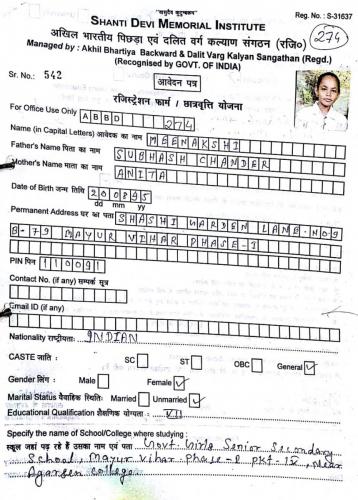 "वसुधैव कुटुम्बकम्"
SHANTI DEVI MEMORIAL INSTITUTE
Reg. No. : S-31637
अखिल भारतीय पिछड़ा एवं दलित वर्ग कल्याण संगठन (रजि०)
274
Managed by : Akhil Bhartiya Backward & Dalit Varg Kalyan Sangathan (Regd.)
(Recognised by GOVT. OF INDIA)
Sr. No.: 542
आवेदन पत्र
रजिस्ट्रेशन फार्म / छात्रवृत्ति योजना
For Office Use Only ABBD 274
Name (in Capital Letters) आवेदक का नाम MEENAKSHI
Father's Name पिता का नाम SUBHASH CHANDER
Mother's Name माता का नाम ANITA
Date of Birth जन्म तिथि 200895
dd mm yy
Permanent Address घर का पता SHASHI GARDEN LANE-NO9
B-79 MAYUR VIHAR PHASE-I
PIN पिन 110091
Contact No. (if any) सम्पर्क सूत्र
Email ID (if any)
Nationality राष्ट्रीयताः INDIAN
CASTE जाति : SC ST OBC General ✓
Gender लिंग : Male Female ✓
Marital Status वैवाहिक स्थिति: Married Unmarried ✓
Educational Qualification शैक्षणिक योग्यता : VII
Specify the name of School/College where studying :
स्कूल जहां पढ़ रहे हैं उसका नाम एवं पता Govt. Girls Senior Secondary
School, Mayur Vihar Phase-I PKT-IV, Near
Agarsen College